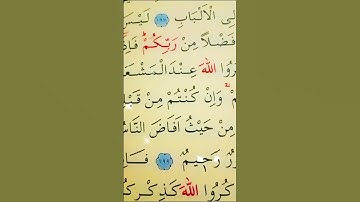 لِى الْاَلْبَابِ ﴿١٩٧﴾ لَيْسَ
فَضْلًا مِنْ رَبِّكُمْ فَاِذَ
كُرُوا اللّٰهَ عِنْدَ الْمَشْعَ
وَاِنْ كُنْتُمْ مِنْ قَبْ
مِنْ حَيْثُ اَفَاضَ النَّاسُ
رٌ رَحِيمٌ ﴿١٩٩﴾ فَاِ
كُرُوا اللّٰهَ كَذِكْرِكُ